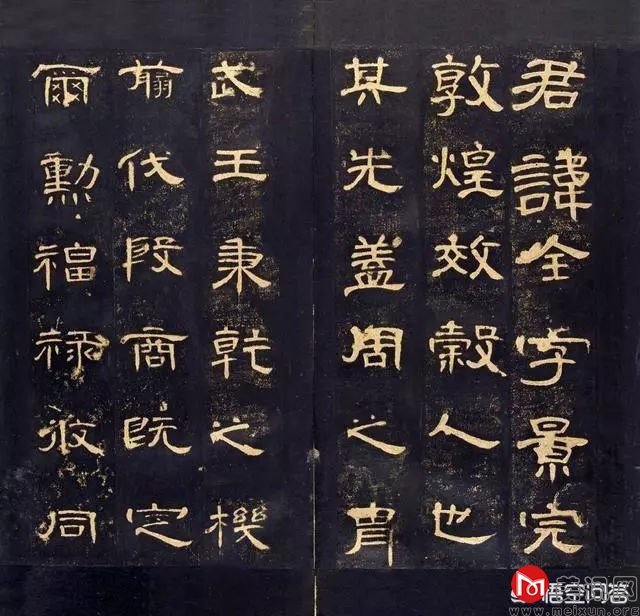 君諱全字景完
敦煌效穀人也
其先蓋周之胄
武王秉乾之機
翦伐殷商既定
爾勲福祿攸同
悟空问答
www.meixun.org